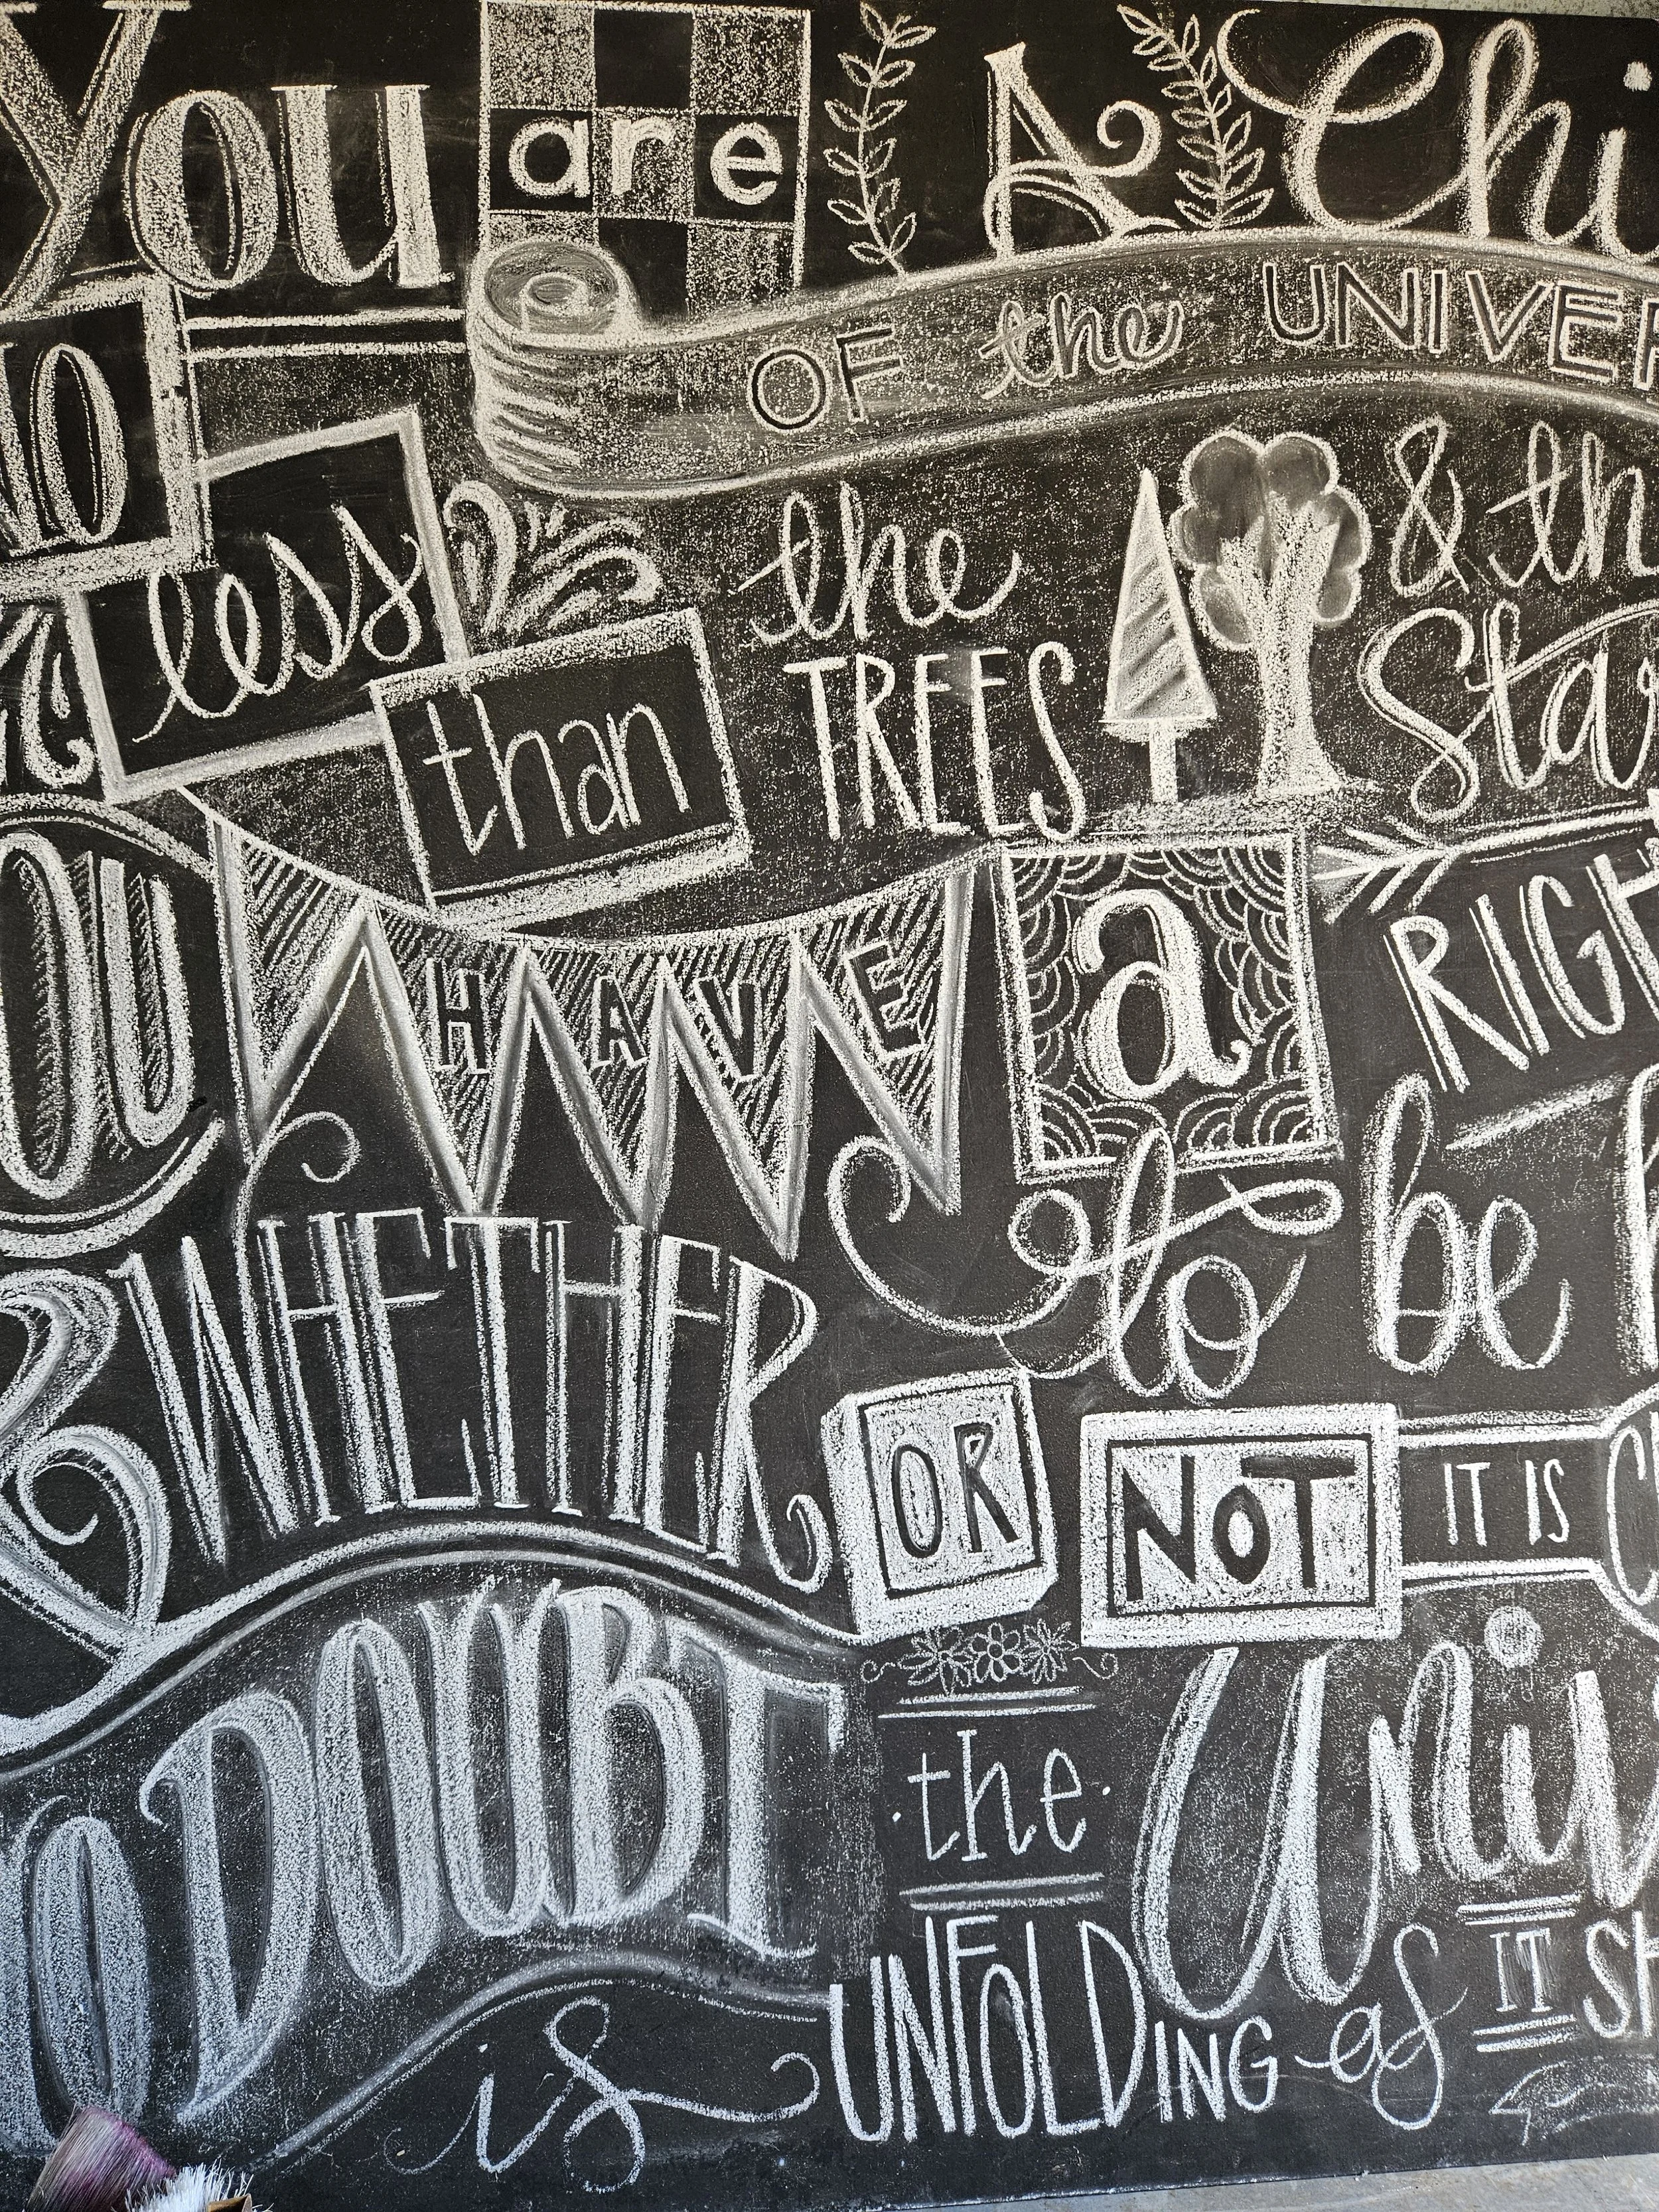 You are A Chi
OF the UNIVER
NO less than the TREES & th
Star
OU HAVE a RIGHT
to be h
& WHETHER OR NOT IT IS Cl
O DOUBT the Univ
is UNFOLDING as IT SH